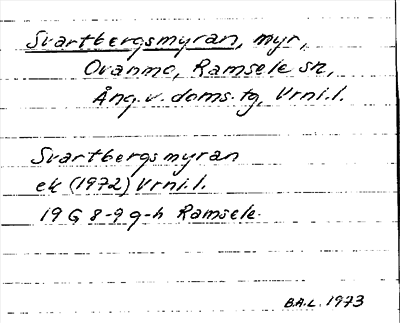 Svartbergsmyran, myr,
Ovanmo, Ramsele sn,
Ång. v. doms. tg, Vrnl.l.
Svartbergsmyran
ek (1972) Vrnl.l.
19 G 8-9 g-h Ramsele.
B.A.L. 1973